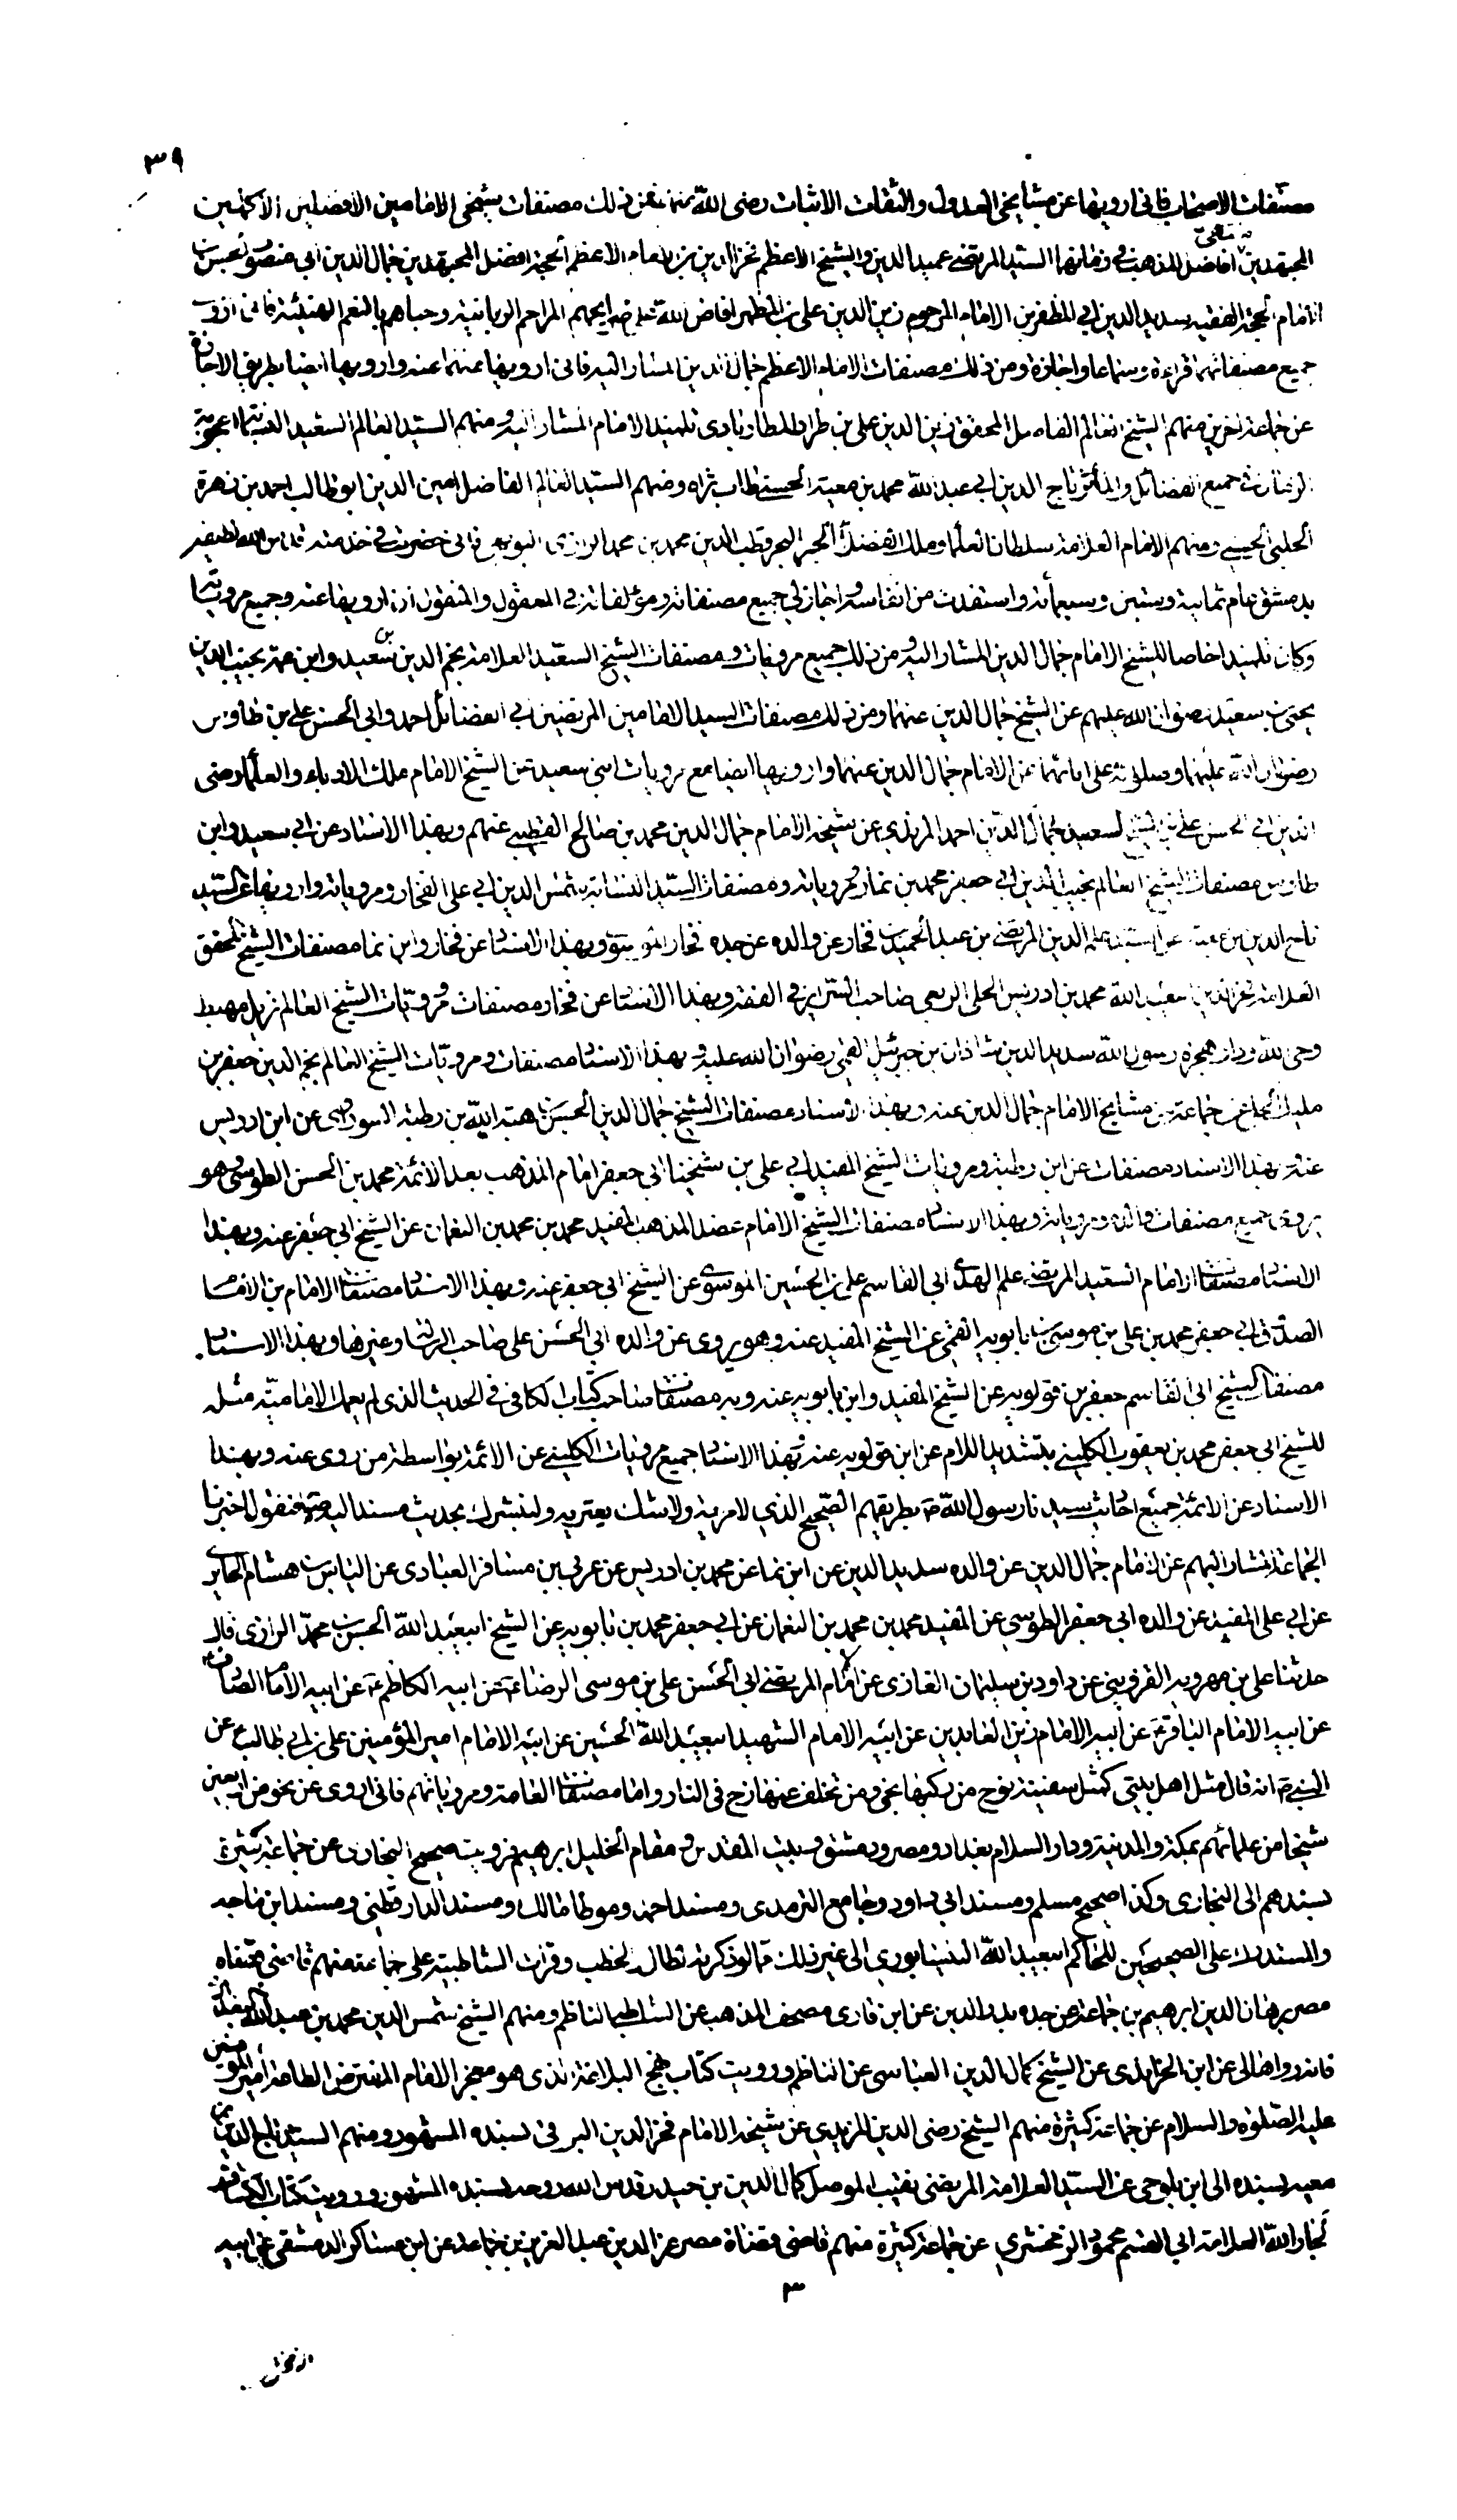 ٣٩
مصنفات الاصحاب فانی ارويها عن مشايخی العدول والثقات الاثبات رضی الله عنهم فمن ذلك مصنفات شیخی الامامین الافضلین الاکملین
المجتهدین افاضل المذهب فی زمانهما السید المرتضی عمید الدین والشیخ الاعظم فخر الدین بن الامام الاعظم الحجة افضل المجتهدین جمال الدین ابی منصور الحسن بن
الامام الحجة الفقیه سدید الدین ابی المظفر بن الامام المرحوم زین الدین علی بن المطهر افاض الله علی ضرایحهم المراحم الربانیة وحباهم بالنعم الهنیئة فانی اروی
جمیع مصنفاتهما قراءة وسماعا واجازة ومن ذلك مصنفات الامام الاعظم جمال الدین المشار الیه فانی ارویها عنهما عنه وارویها ایضا بطریق الاجازة
عن جماعة اخرین منهم الشیخ العالم الفاضل المحقق زین الدین علی بن طراد المطارابادی تلمیذ الامام المشار الیه ومنهم السید العالم السعید النسابة اعجوبة
الزمان فی جمیع الفضائل والمآثر تاج الدین ابی عبد الله محمد بن معیة الحسنی طاب ثراه ومنهم السید العالم الفاضل امین الدین ابو طالب احمد بن زهرة
الحلبی الحسینی ومنهم الامام العلامة سلطان العلما وملك الفضلا الحبر البحر قطب الدین محمد بن محمد الرازی البویهی فانی حضرت فی خدمته قدس الله لطیفه
بدمشق عام ثمانیة وستین وسبعمأة واستفدت من انفاسه واجاز لی جمیع مصنفاته ومؤلفاته فی المعقول والمنقول ان ارویها عنه وجمیع مرویاته
وکان تلمیذا خاصا للشیخ الامام جمال الدین المشار الیه ومن ذلك جمیع مرویات ومصنفات الشیخ السعید العلامة نجم الدین بن سعید وابن عمه نجیب الدین
یحیی بن سعید رضوان الله علیهم عن الشیخ جمال الدین عنهما ومن ذلك مصنفات السید الامامین المرتضین ابی الفضائل احمد وابی الحسن علی بن طاوس
رضوان الله علیهما وصلوته علی ابائهما عن الامام جمال الدین عنهما وارویها ایضا مع مرویات ابنی سعید عن الشیخ الامام ملك الادباء والعلما رضی
الدین ابی الحسن علی بن الشیخ السعید جمال الدین احمد المزیدی عن شیخه الامام جمال الدین محمد بن صالح القسینی عنهم وبهذا الاسناد عن ابنی سعید وابن
طاوس مصنفات الشیخ العالم نجیب الدین ابی جعفر محمد بن نما ومرویاته ومصنفات السید النسابة شمس الدین ابی علی الفخار ومرویاته وارویها عن السید
تاج الدین بن معیة عن السید علم الدین المرتضی بن عبد الحمید بن فخار عن والده عن جده فخار الموسوی وبهذا الاسناد عن فخار وابن نما مصنفات الشیخ المحقق
العلامة فخر الدین ابی عبد الله محمد بن ادریس الحلی الربعی صاحب السرایر فی الفقه وبهذا الاسناد عن فخار مصنفات ومرویات الشیخ العالم نزیل مهبط
وحی الله ودار هجرة رسول الله سدید الدین شاذان بن جبرئیل القمی رضوان الله علیه وبهذا الاسناد مصنفات ومرویات الشیخ العالم نجم الدین جعفر بن
ملیك الحلی عن جماعة من مشایخ الامام جمال الدین عنه وبهذا الاسناد مصنفات الشیخ جمال الدین الحسین بن هبة الله بن رطبة السوراوی عن ابن ادریس
عنه وبهذا الاسناد مصنفات عن ابن رطبة ومرویات الشیخ المفید ابی علی بن شیخنا ابی جعفر امام المذهب بعد الائمة محمد بن الحسن الطوسی وهو
یروی جمیع مصنفات والده ومرویاته وبهذا الاسناد مصنفات الشیخ الامام عضد المذهب المفید محمد بن محمد بن النعمان عن الشیخ ابی جعفر عنه وبهذا
الاسناد مصنفات الامام السعید المرتضی علم الهدی ابی القاسم علی بن الحسین الموسوی عن الشیخ ابی جعفر عنه وبهذا الاسناد مصنفات الامام بن الامام
الصدوق ابی جعفر محمد بن علی بن موسی بن بابویه القمی عن الشیخ المفید عنه وهو یروی عن والده ابی الحسن علی صاحب الرسالة وغیرها وبهذا الاسناد
مصنفات الشیخ ابی القاسم جعفر بن قولویه عن الشیخ المفید وابن بابویه عنه وبه مصنفات صاحب کتاب الکافی فی الحدیث الذی لم یعمل الامامیة مثله
للشیخ ابی جعفر محمد بن یعقوب الکلینی بتشدید اللام عن ابن قولویه عنه وبهذا الاسناد جمیع مرویات الکلینی عن الائمة بواسطة من روی عنه وبهذا
الاسناد عن الائمة جمیع احادیث سیدنا رسول الله ص بطریقهم الصحیح الذی لا مریة ولا شك یعتریه ولنتبرك بحدیث مسند الیه ص فنقول اخبرنا
الجماعة المشار الیهم عن الامام جمال الدین عن والده سدید الدین عن ابن نما عن محمد بن ادریس عن عربی بن مسافر العبادی عن الیاس بن هشام الحایری
عن ابی علی المفید عن والده ابی جعفر الطوسی عن المفید محمد بن محمد بن النعمان عن ابی جعفر محمد بن بابویه عن الشیخ ابی عبد الله الحسین بن محمد الرازی قال
حدثنا علی بن مهرویه القزوینی عن داود بن سلیمان الغازی عن الامام المرتضی ابی الحسن علی بن موسی الرضا ع عن ابیه الکاظم ع عن ابیه الامام الصادق ع
عن ابیه الامام الباقر ع عن ابیه الامام زین العابدین عن ابیه الامام الشهید ابی عبد الله الحسین عن ابیه الامام امیر المؤمنین علی بن ابی طالب ع عن
النبی ص انه قال مثل اهل بیتی کمثل سفینة نوح من رکبها نجی ومن تخلف عنها زج فی النار واما مصنفات العامة ومرویاتهم فانی اروی عن نحو من اربعین
شیخا من علمائهم بمکة والمدینة ودار السلام بغداد ومصر ودمشق وبیت المقدس ومقام الخلیل ابرهیم فرویت صحیح البخاری عن جماعة کثیرة
بسندهم الی البخاری وکذا صحیح مسلم ومسند ابی داود وجامع الترمذی ومسند احمد وموطا مالك ومسند الدارقطنی ومسند ابن ماجه
والمستدرك علی الصحیحین للحاکم ابی عبد الله النیسابوری الی غیر ذلك مما لو ذکرته لطال الخطب وقرات الشاطبیة علی جماعة منهم قاضی قضاه
مصر برهان الدین ابرهیم بن جماعة عن جده بدر الدین عن ابن قاری مصحف الذهب عن الشاطبی الناظم ومنهم الشیخ شمس الدین محمد بن عبد الله البغدادی
فانه رواها لی عن ابن الخرایدی عن الشیخ کمال الدین العباسی عن الناظم ورویت کتاب نهج البلاغة الذی هو معجز الامام المفترض الطاعة امیر المؤمنین
علیه الصلوة والسلام عن جماعة کثیرة منهم الشیخ رضی الدین المزیدی عن شیخه الامام فخر الدین البوقی بسنده المشهور ومنهم السید تاج الدین بن
معیه بسنده الی ابن بلوجی عن السید العلامة المرتضی نقیب الموصل کمال الدین بن حیدر قدس الله روحه بسنده المشهور ورویت کتاب الکشاف
لجار الله العلامة ابی القسم محمود الزمخشری عن جماعة کثیرة منهم قاضی قضاة مصر عز الدین عبد العزیز بن جماعة عن ابن عساکر الدمشقی عن ابیه
٣